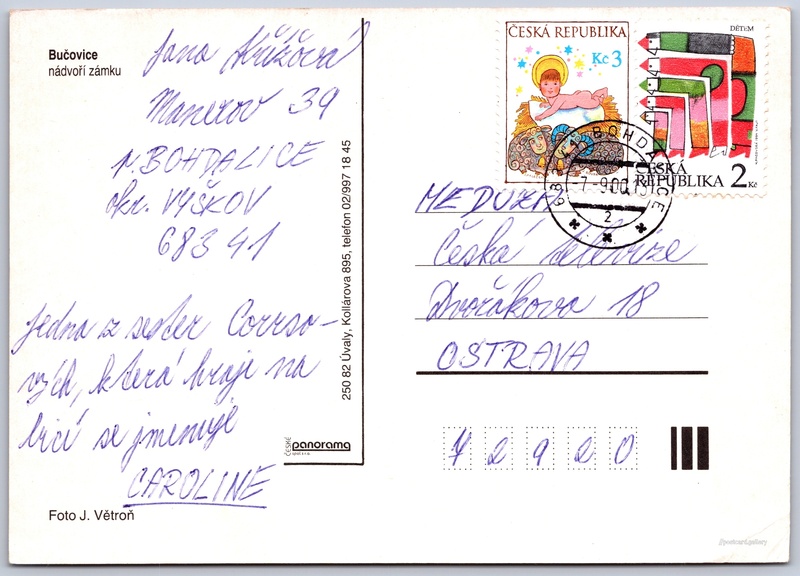 Bučovice
nádvoří zámku
Jana Křížová
Manerov 39
p. BOHDALICE
okr. VYŠKOV
683 41
jedna z sester Corrso-
vých, která hraje na
bicí se jmenuje
CAROLINE
Foto J. Větroň
250 82 Úvaly, Kollárova 895, telefon 02/997 18 45
ČESKÉ
panorama
spol. s r.o.
ČESKÁ REPUBLIKA
Kč 3
DĚTEM
ČESKÁ
REPUBLIKA 2 Kč
BOHDALICE
-7.-9.00
2
MEDUZA
Česká televize
Dvořákova 18
OSTRAVA
72920